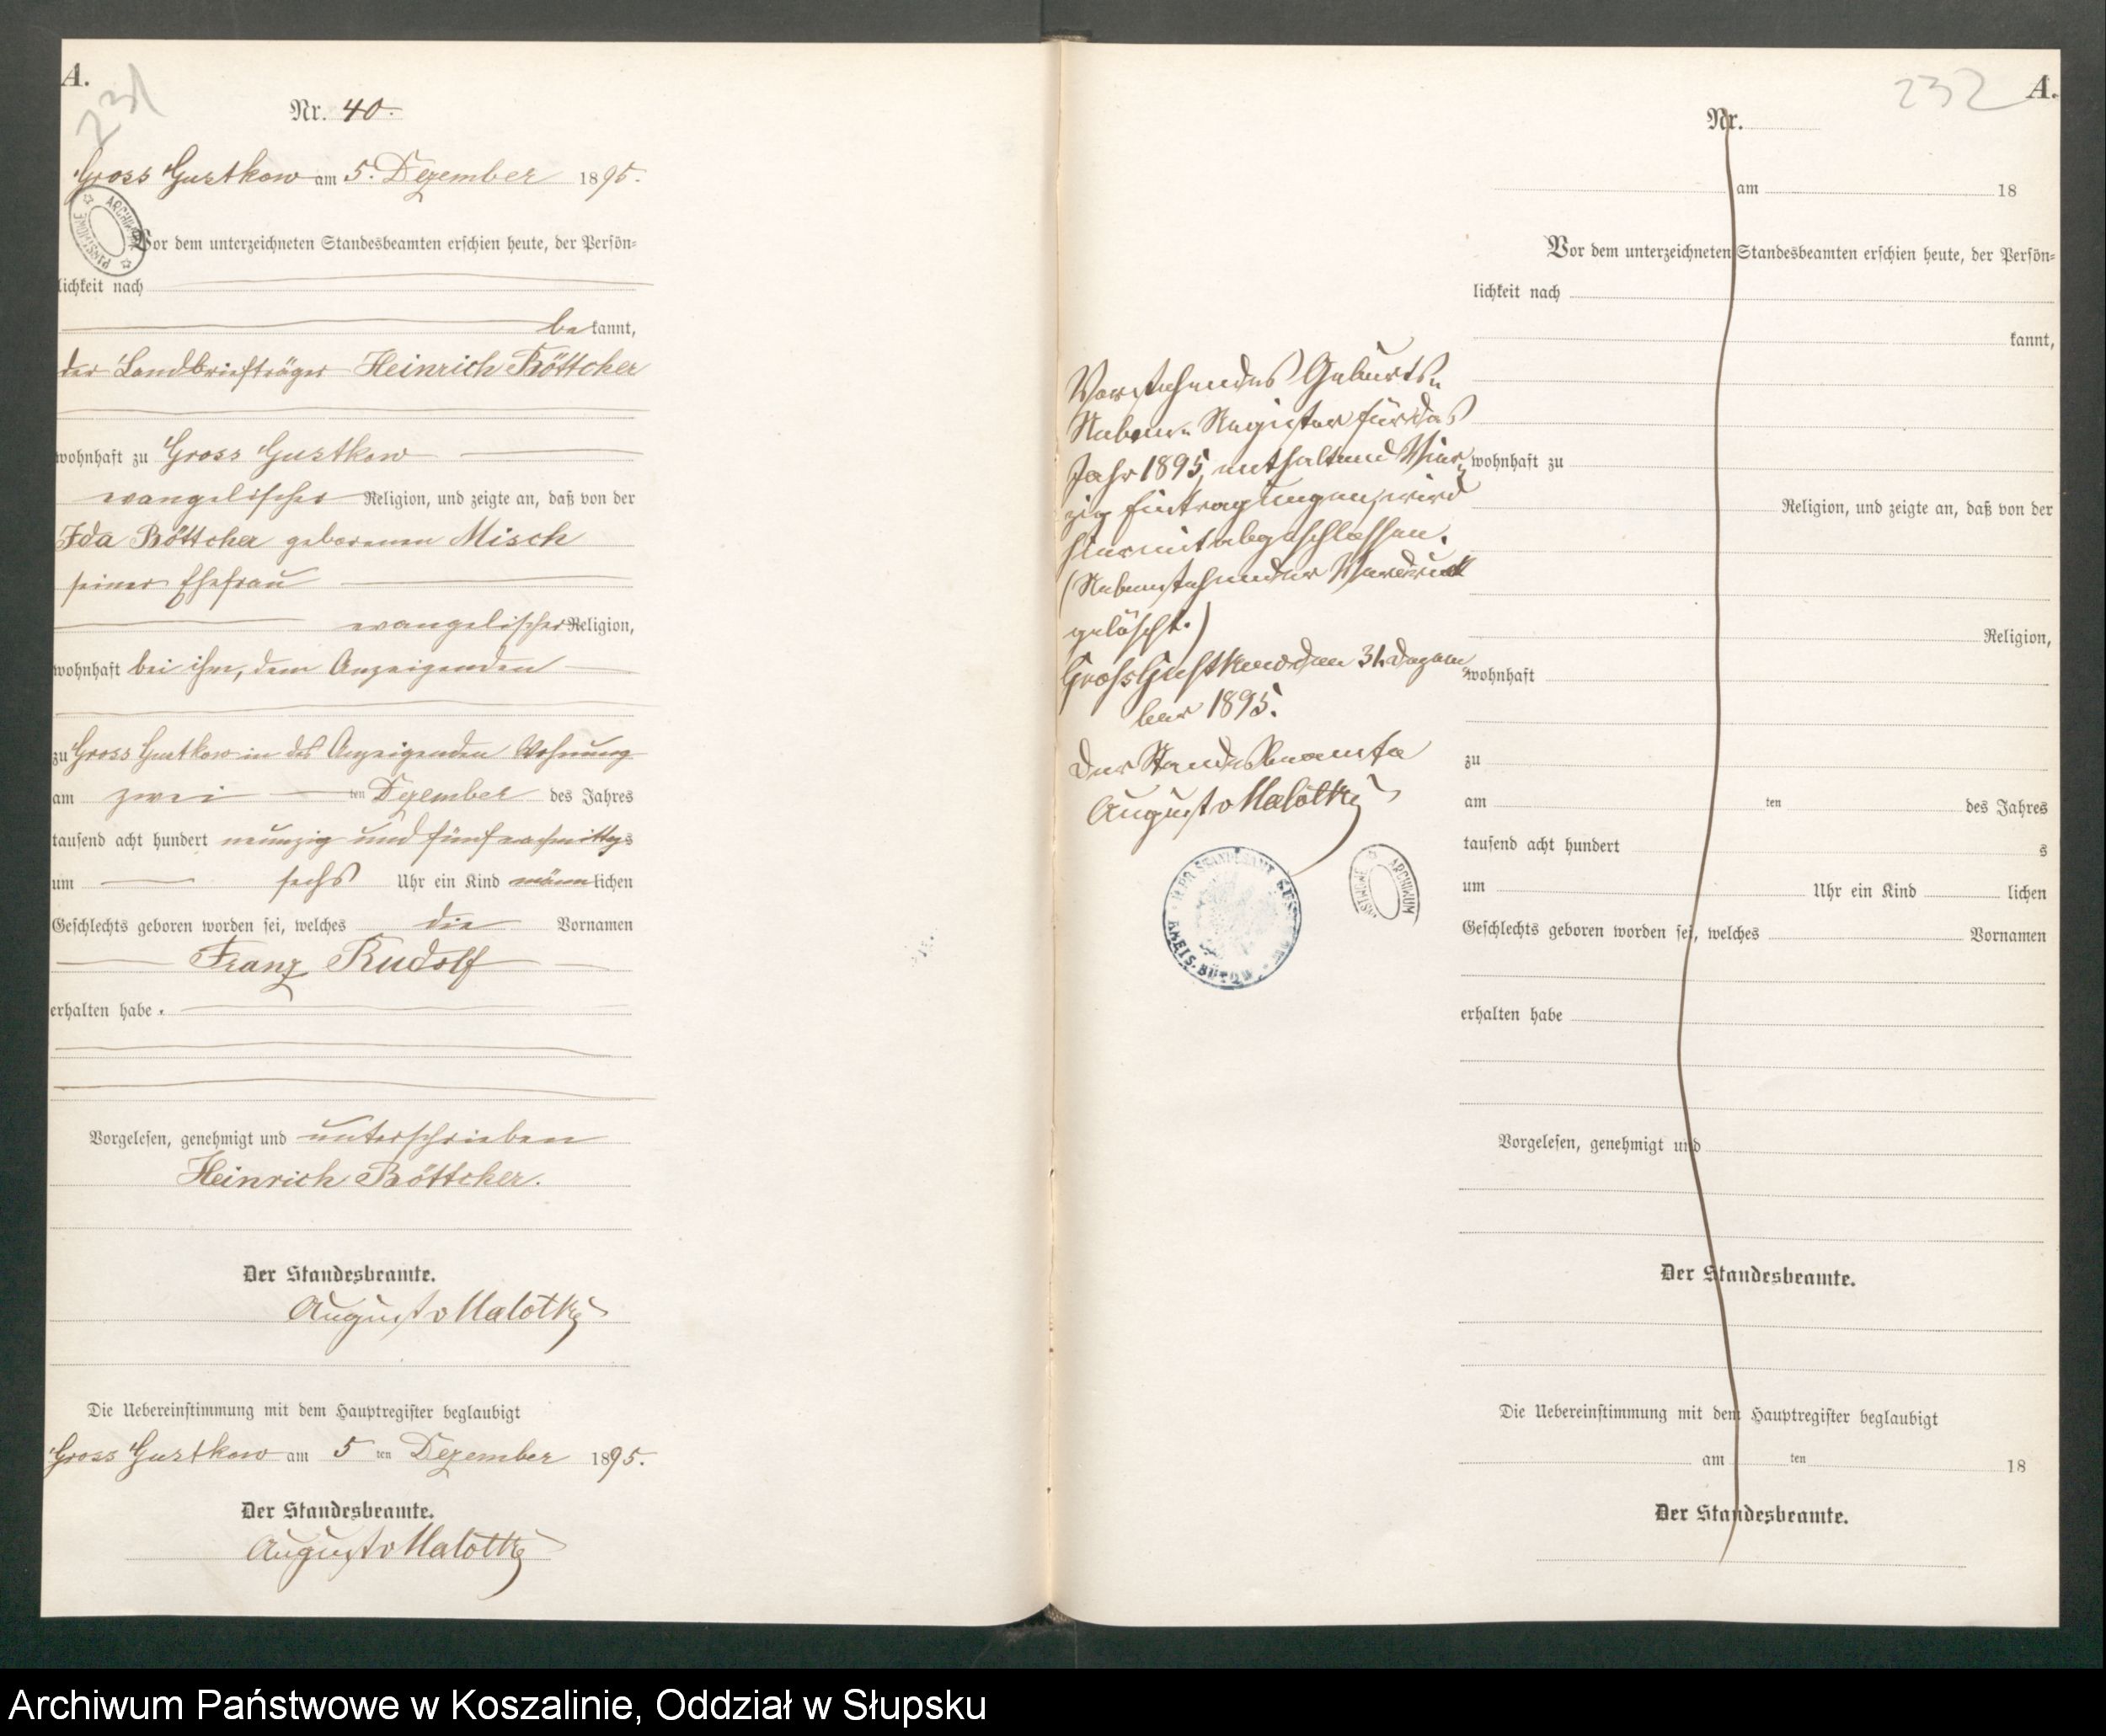 A.
231
Nr. 40.
Gross Gustkow am 5. Dezember 1895.
Vor dem unterzeichneten Standesbeamten erschien heute, der Persön-
lichkeit nach
bekannt,
der Landbriefträger Heinrich Böttcher
wohnhaft zu Gross Gustkow
evangelischer Religion, und zeigte an, daß von der
Ida Böttcher geborenen Misch
seiner Ehefrau
evangelischer Religion,
wohnhaft bei ihm, dem Anzeigenden
zu Gross Gustkow in des Anzeigenden Wohnung
am zwei ten Dezember des Jahres
tausend acht hundert neunzig und fünf nachmittags
um sechs Uhr ein Kind männlichen
Geschlechts geboren worden sei, welches die Vornamen
Franz Rudolf
erhalten habe.
Vorgelesen, genehmigt und unterschrieben
Heinrich Böttcher.
Der Standesbeamte.
August v Malottky
Die Uebereinstimmung mit dem Hauptregister beglaubigt
Gross Gustkow am 5 ten Dezember 1895.
Der Standesbeamte.
August v Malottky
ARCHIWUM PAŃSTWOWE
Vorstehendes Geburts-
Neben-Register für das
Jahr 1895, enthaltend Vier-
zig Eintragungen, wird
hiermit abgeschlossen.
(Nebenstehender Vordruck
gelöscht.)
Gross Gustkow den 31. Dezem-
ber 1895.
Der Standesbeamte
August v Malottky
KREIS BÜTOW
ARCHIWUM
232
A.
Nr.
am 18
Vor dem unterzeichneten Standesbeamten erschien heute, der Persön-
lichkeit nach
kannt,
wohnhaft zu
Religion, und zeigte an, daß von der
Religion,
wohnhaft
zu
am ten des Jahres
tausend acht hundert s
um Uhr ein Kind lichen
Geschlechts geboren worden sei, welches Vornamen
erhalten habe
Vorgelesen, genehmigt und
Der Standesbeamte.
Die Uebereinstimmung mit dem Hauptregister beglaubigt
am ten 18
Der Standesbeamte.
Archiwum Państwowe w Koszalinie, Oddział w Słupsku